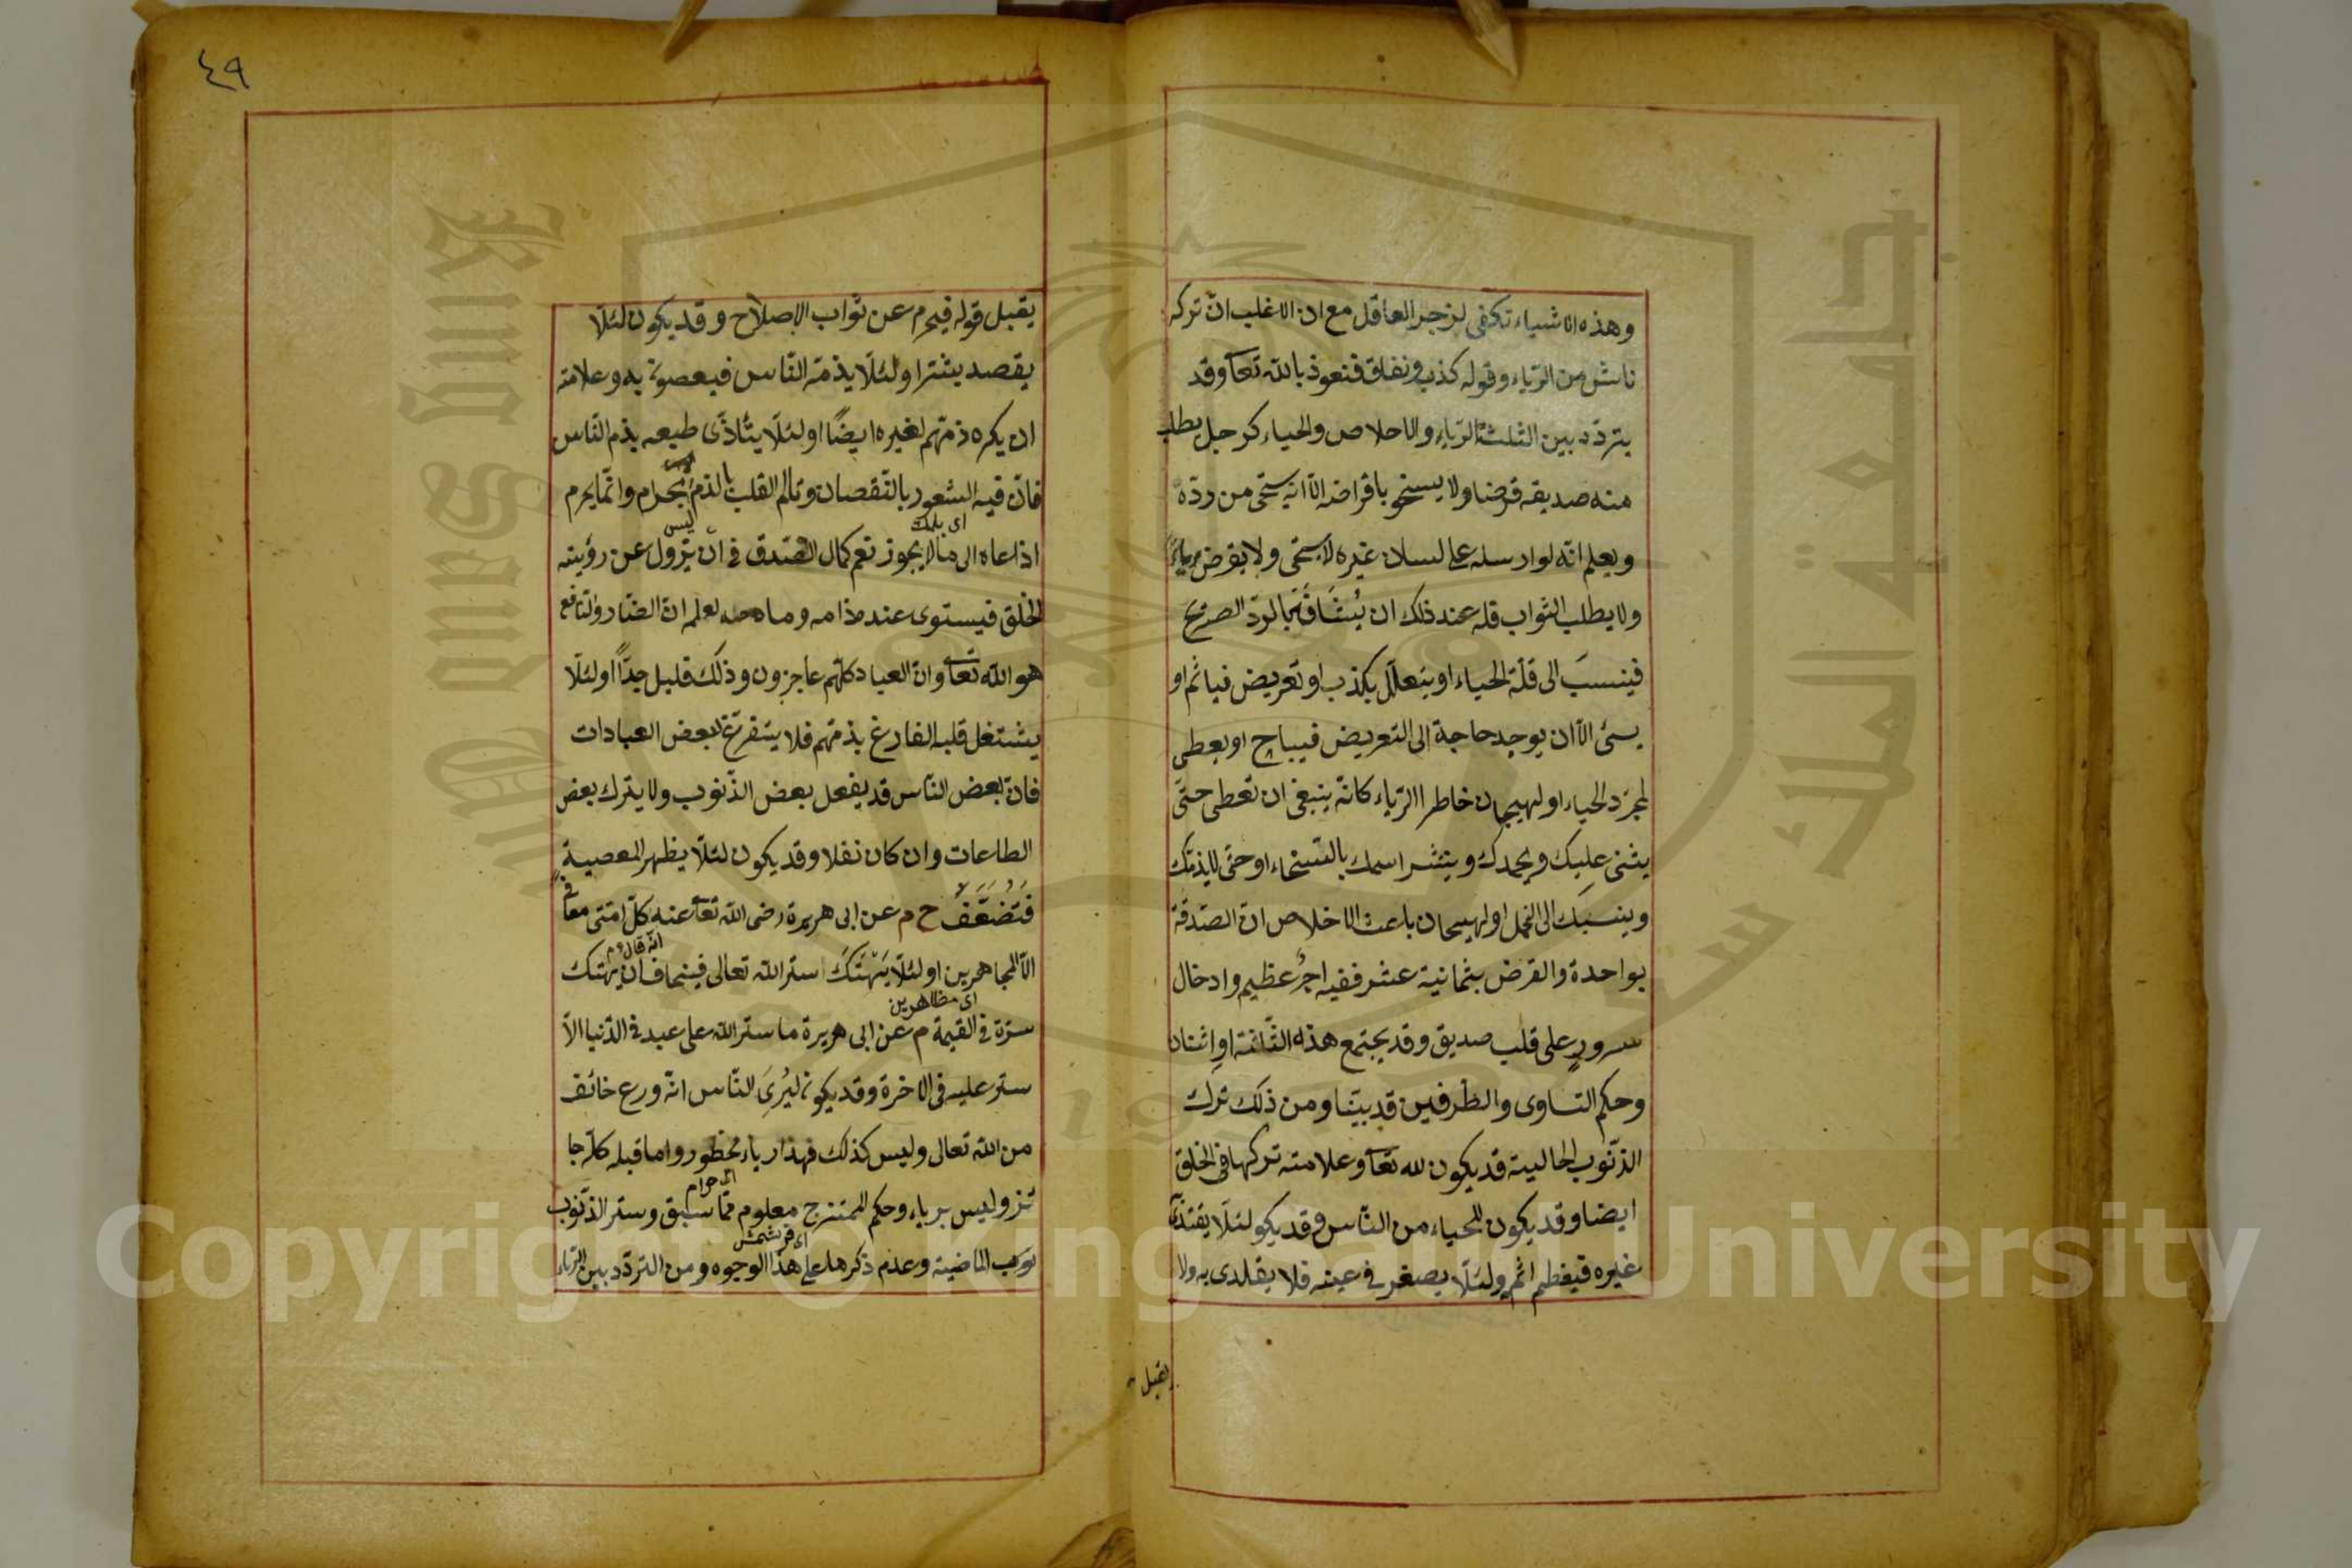 وهذه الاشياء تكفى لزجر العاقل مع ان الاغلب ان تركه
ناش من الرياء وقوله كذب ونفاق فنعوذ بالله تعا وقد
يتردد بين الثلثة الرياء والاخلاص والحياء كرجل يطلب
منه صديقه قرضا ولا يسخو باقراضه الا انه يستحى من رده
ويعلم انه لو ارسله على لسان غيره لا يستحى ولا يقرض رياء
ولا يطلب الثواب فله عند ذلك ان يشافه بالرد الصريح
فينسب الى قلة الحياء او يتعلل بكذب او تعريض فياثم او
يسئ الا ان يوجد حاجة الى التعريض فيباح او يعطى
لمجرد الحياء او لهيجان خاطر الرياء كانه ينبغى ان تعطى حتى
يثنى عليك ويحمدك وينتشر اسمك بالسخاء او حتى لا يذمك
وينسبك الى البخل او لهيجان باعث الاخلاص ان الصدقة
بواحدة والقرض بثمانية عشر ففيه اجر عظيم وادخال
سرور على قلب صديق وقد يجتمع هذه الثلثة او اثنان
وحكم التساوى والطرفين قد بينا ومن ذلك ترك
الذنوب الحالية قد يكون لله تعا وعلامته تركها فى الخلق
ايضا وقد يكون للحياء من الناس وقد يكو لئلا يقتدى
غيره فيعظم اثم ولئلا يصغر فى عينه فلا يقتدى به ولا
يقبل
٤٩
يقبل قوله فيحرم عن ثواب الاصلاح وقد يكون لئلا
يقصد بشر او لئلا يذمه الناس فيعصون به وعلامته
ان يكره ذمهم لغيره ايضا او لئلا يتأذى طبعه بذم الناس
فان فيه الشعور بالنقصان وتالم القلب بالذم ليس بحرام وانما يحرم
اذا دعاه الى ما لا يجوز نعم كمال الصدق فى ان يزول عن رؤيته
الخلق فيستوى عنده ذامه ومادحه لعلمه ان الضار والنافع
هو الله تعا وان العباد كلهم عاجزون وذلك قليل جدا او لئلا
يشتغل قلبه الفارغ بذمهم فلا يتفرغ لبعض العبادات
فان بعض الناس قد يفعل بعض الذنوب ولا يترك بعض
الطاعات وان كان نفلا وقد يكون لئلا يظهر المعصية
فتضعف خ م عن ابى هريرة رضى الله تعا عنه كل امتى معافى
انه قال
الا المجاهرين او لئلا يهتك ستر الله تعالى فيخاف ان يهتك
اى مظاهرين
ستره فى القيمة م عن ابى هريرة ما ستر الله على عبد فى الدنيا الا
ستر عليه فى الاخرة وقد يكون ليرى الناس انه ورع خائف
من الله تعالى وليس كذلك فهذا رياء محظور واما قبله كله جا
اى حرام
ئز وليس برياء وحكم الممتزج معلوم مما سبق وستر الذنوب
الماضية وعدم ذكرها على هذا الوجوه ومن التردد بين الرياء
Copyright © King Saud University
جامعة الملك سعود
King Saud University